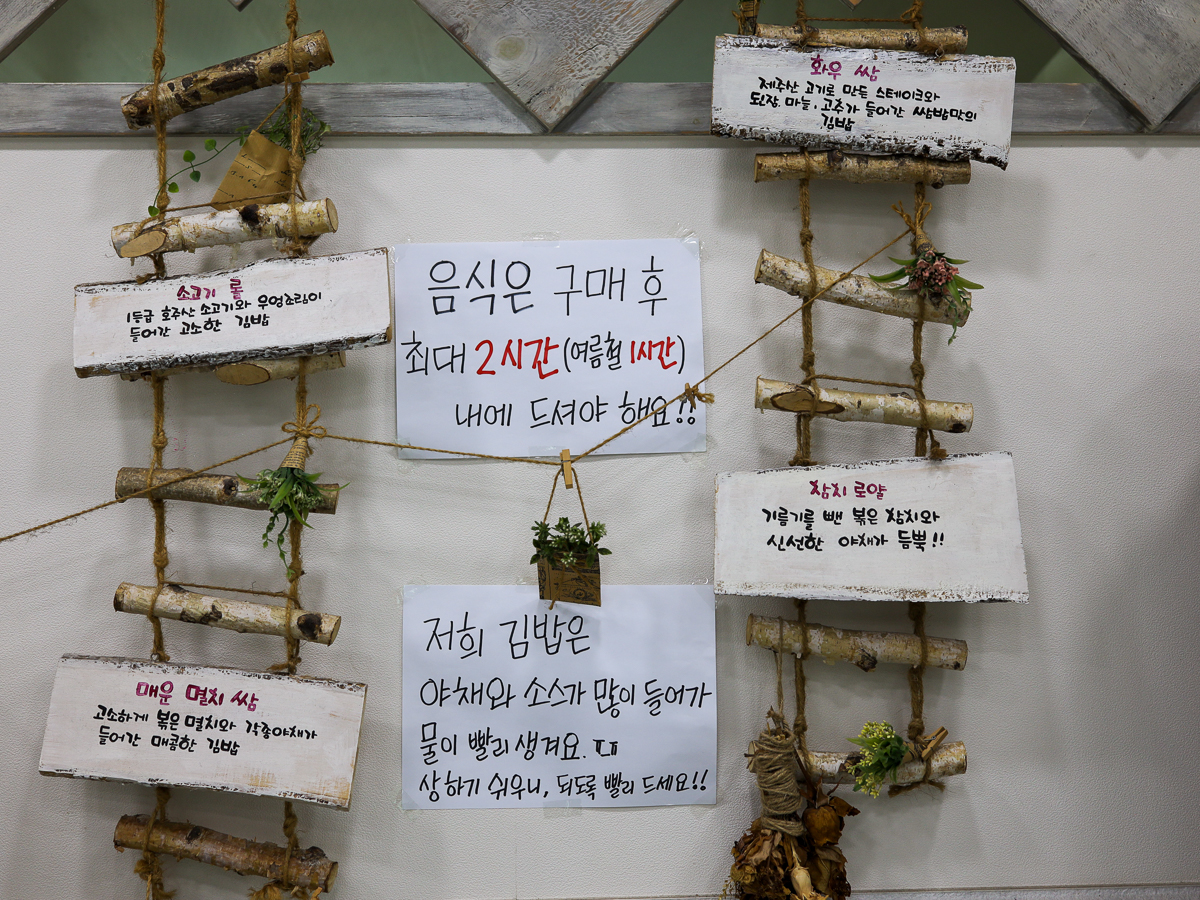 소고기 롤
1등급 호주산 소고기와 우엉조림이
들어간 고소한 김밥
매운 멸치 쌈
고소하게 볶은 멸치와 각종야채가
들어간 매콤한 김밥
음식은 구매 후
최대 2시간(여름철 1시간)
내에 드셔야 해요!!
저희 김밥은
야채와 소스가 많이 들어가
물이 빨리 생겨요. ㅠ
상하기 쉬우니, 되도록 빨리 드세요!!
화우 쌈
제주산 고기로 만든 스테이크와
된장, 마늘, 고추가 들어간 쌈밥맛의
김밥
참치 로얄
기름기를 뺀 볶은 참치와
신선한 야채가 듬뿍!!